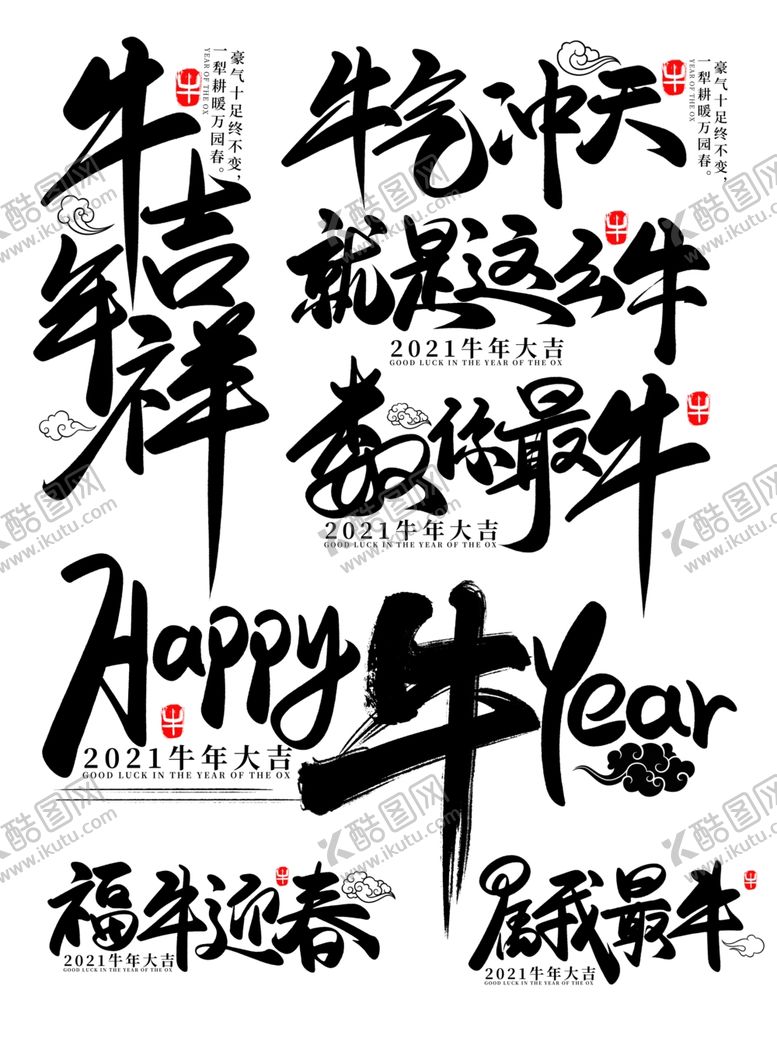 牛年吉祥
牛
豪气十足终不变，
一犁耕暖万园春。
YEAR OF THE OX
牛气冲天
牛
豪气十足终不变，
一犁耕暖万园春。
YEAR OF THE OX
就是这么牛
牛
2021牛年大吉
GOOD LUCK IN THE YEAR OF THE OX
数你最牛
牛
2021牛年大吉
GOOD LUCK IN THE YEAR OF THE OX
Happy牛Year
牛
2021牛年大吉
GOOD LUCK IN THE YEAR OF THE OX
福牛迎春
牛
2021牛年大吉
GOOD LUCK IN THE YEAR OF THE OX
属我最牛
牛
2021牛年大吉
GOOD LUCK IN THE YEAR OF THE OX
酷图网
www.ikutu.com